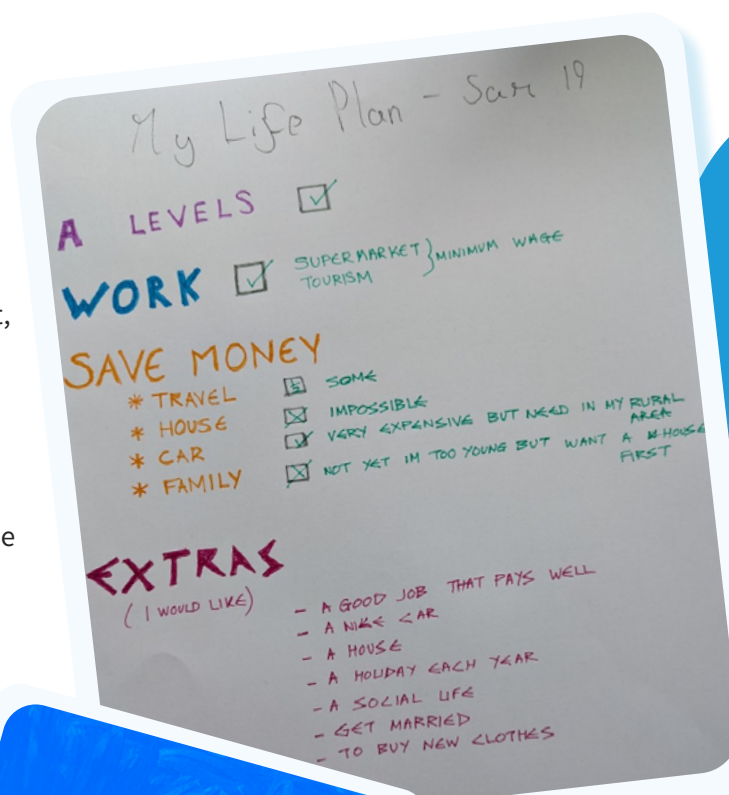 My Life Plan - Sar 19
A LEVELS
WORK SUPERMARKET } MINIMUM WAGE
TOURISM
SAVE MONEY
* TRAVEL SOME
* HOUSE IMPOSSIBLE
* CAR VERY EXPENSIVE BUT NEED IN MY RURAL
AREA
* FAMILY NOT YET IM TOO YOUNG BUT WANT A HOUSE
FIRST
EXTRAS
(I WOULD LIKE)
- A GOOD JOB THAT PAYS WELL
- A NIKE CAR
- A HOUSE
- A HOLIDAY EACH YEAR
- A SOCIAL LIFE
- GET MARRIED
- TO BUY NEW CLOTHES